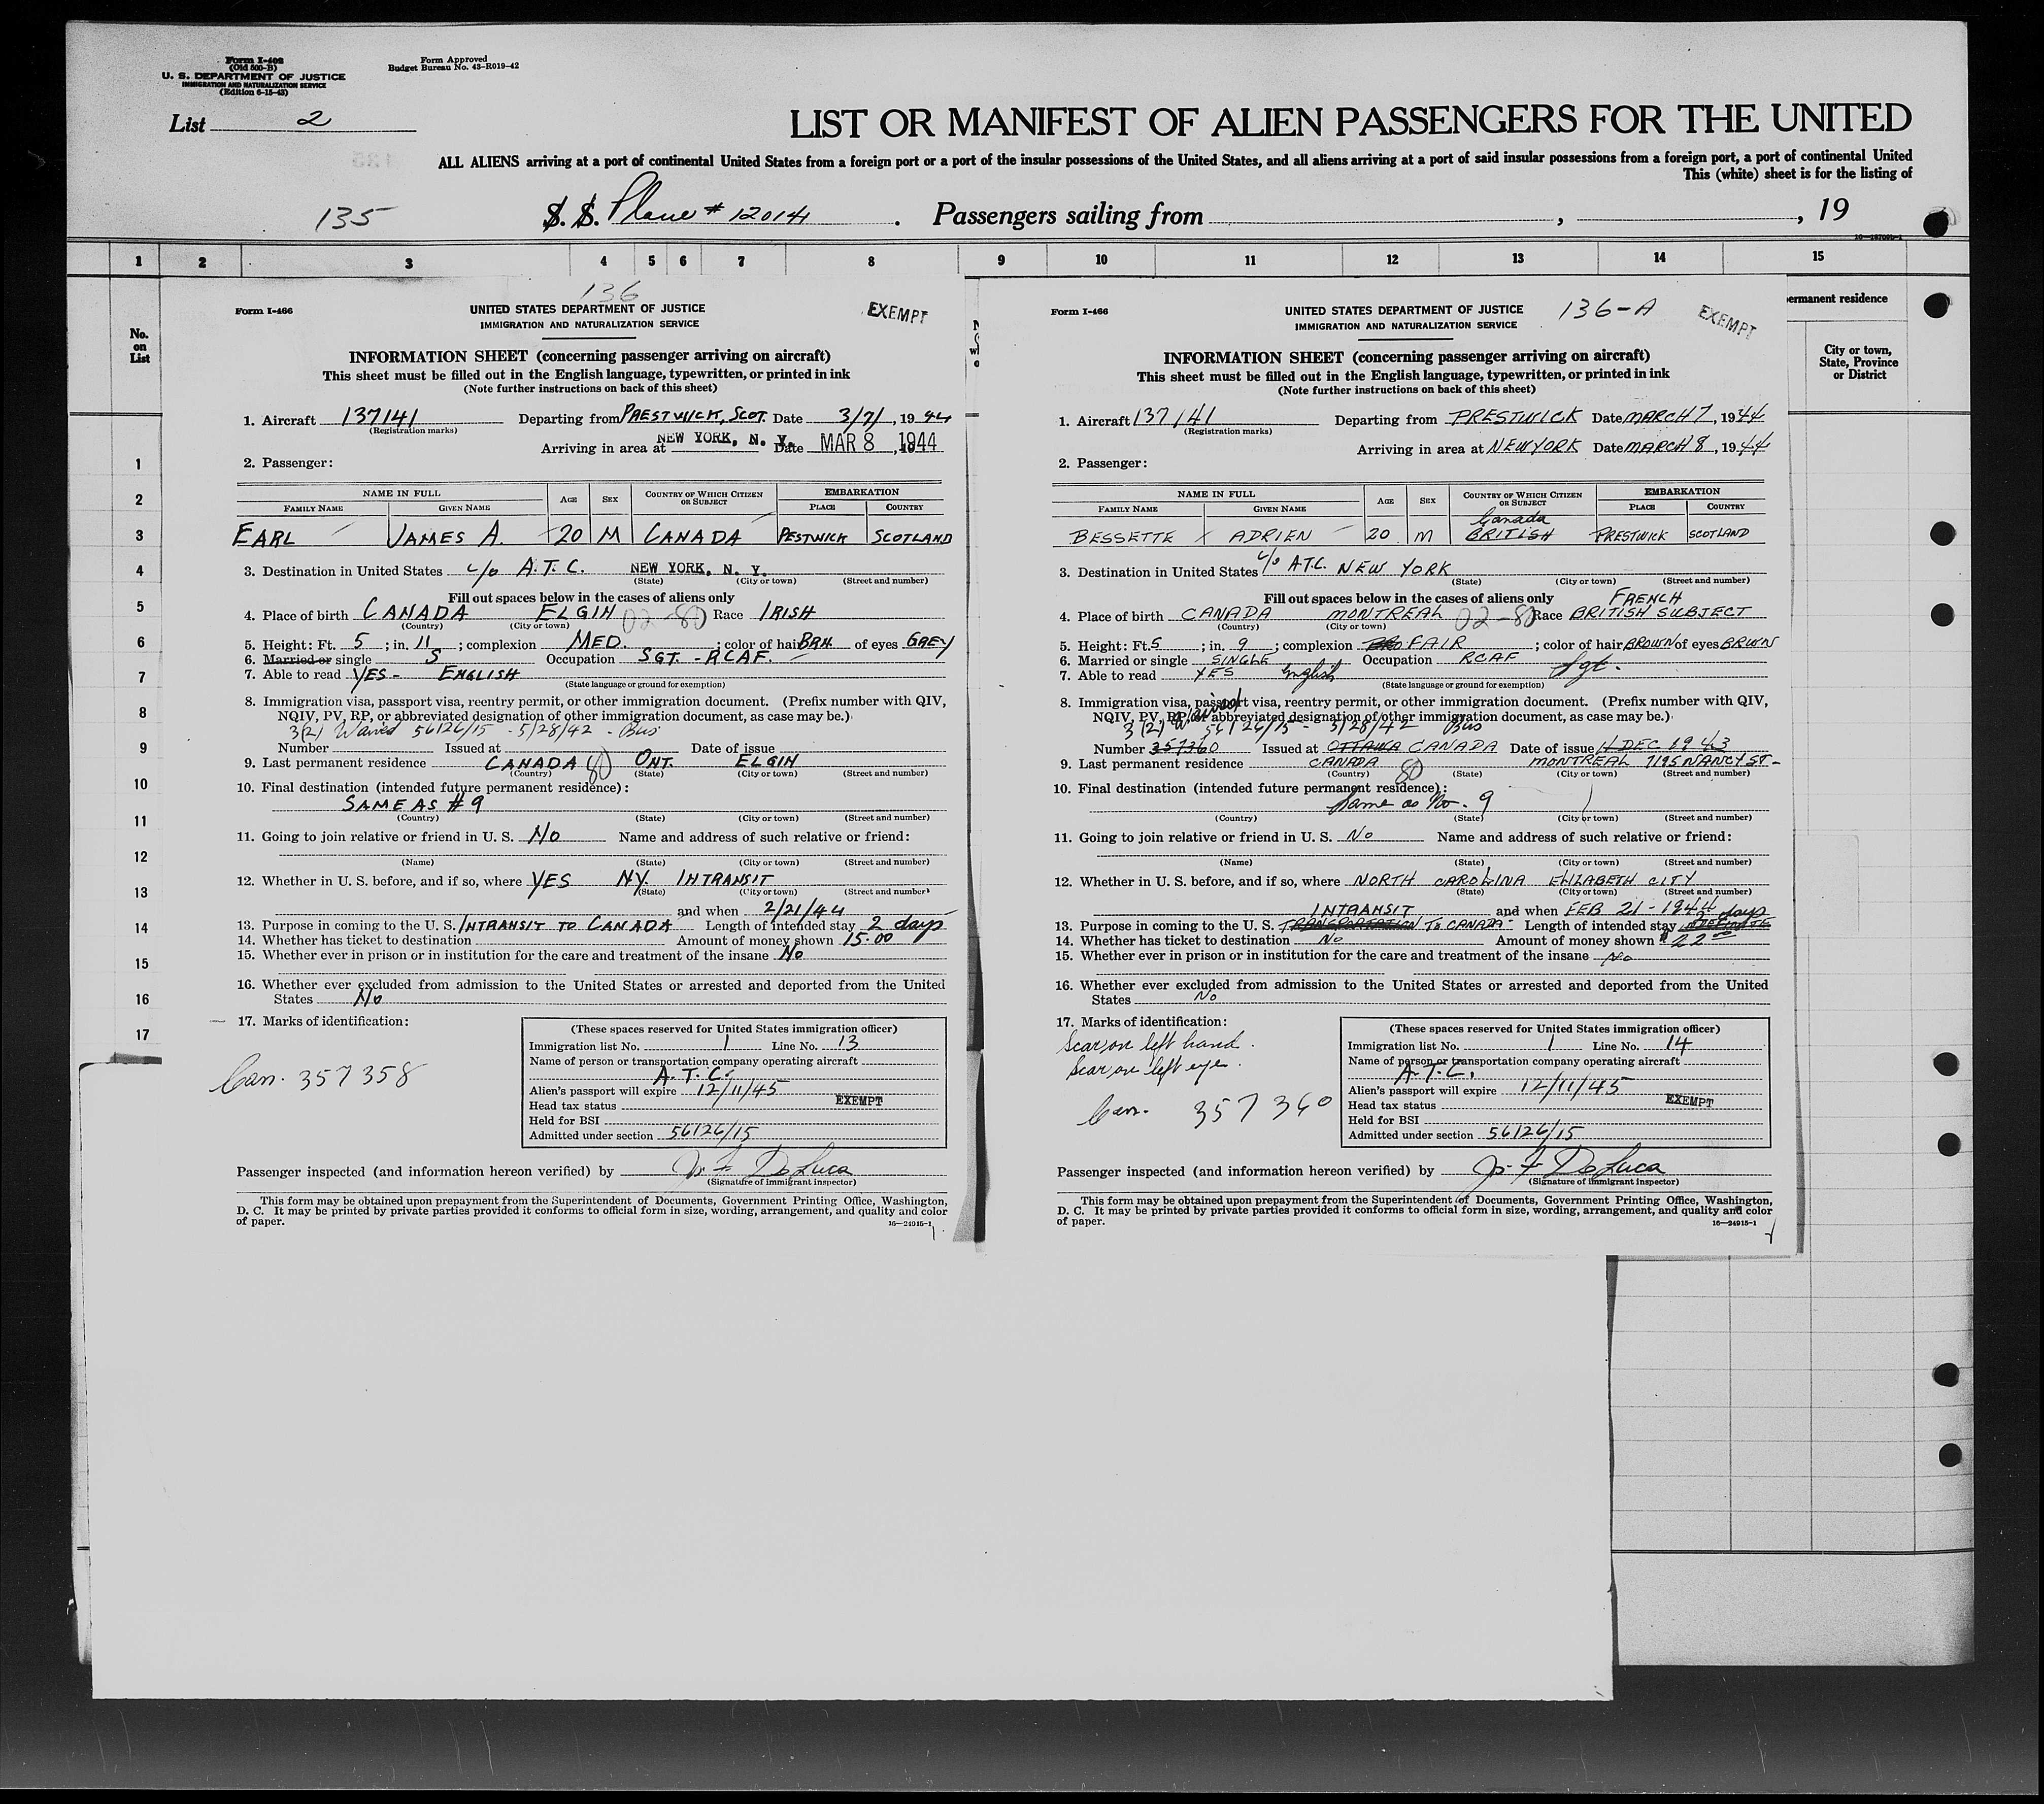 Form I-402
(Old 500-B)
U. S. DEPARTMENT OF JUSTICE
IMMIGRATION AND NATURALIZATION SERVICE
(Edition 6-15-43)
Form Approved
Budget Bureau No. 43-R019-42
List 2
LIST OR MANIFEST OF ALIEN PASSENGERS FOR THE UNITED
ALL ALIENS arriving at a port of continental United States from a foreign port or a port of the insular possessions of the United States, and all aliens arriving at a port of said insular possessions from a foreign port, a port of continental United
This (white) sheet is for the listing of
135 S. S. Plane # 12014. Passengers sailing from , , 19
1 2 3 4 5 6 7 8 9 10 11 12 13 14 15
No. on List
1
2
3
4
5
6
7
8
9
10
11
12
13
14
15
16
17
136
Form I-466
UNITED STATES DEPARTMENT OF JUSTICE
IMMIGRATION AND NATURALIZATION SERVICE
EXEMPT
INFORMATION SHEET (concerning passenger arriving on aircraft)
This sheet must be filled out in the English language, typewritten, or printed in ink
(Note further instructions on back of this sheet)
1. Aircraft 137141 Departing from PRESTWICK, SCOT. Date 3/7/, 1944
(Registration marks)
Arriving in area at NEW YORK, N. Y. Date MAR 8, 1944
2. Passenger:
NAME IN FULL AGE SEX COUNTRY OF WHICH CITIZEN OR SUBJECT EMBARKATION
FAMILY NAME GIVEN NAME PLACE COUNTRY
EARL JAMES A. 20 M CANADA PESTWICK SCOTLAND
3. Destination in United States c/o A.T.C. NEW YORK, N. Y.
(State) (City or town) (Street and number)
Fill out spaces below in the cases of aliens only
4. Place of birth CANADA ELGIN 02-80 Race IRISH
(Country) (City or town)
5. Height: Ft. 5; in. 11; complexion MED.; color of hair BRN of eyes GREY
6. Married or single S Occupation SGT. - RCAF.
7. Able to read YES - ENGLISH
(State language or ground for exemption)
8. Immigration visa, passport visa, reentry permit, or other immigration document. (Prefix number with QIV,
NQIV, PV, RP, or abbreviated designation of other immigration document, as case may be.)
3(2) Waived 56126/15 - 5/28/42 - Bus
Number Issued at Date of issue
9. Last permanent residence CANADA 80 ONT. ELGIN
(Country) (State) (City or town) (Street and number)
10. Final destination (intended future permanent residence):
SAME AS # 9
(Country) (State) (City or town) (Street and number)
11. Going to join relative or friend in U. S. No Name and address of such relative or friend:
(Name) (State) (City or town) (Street and number)
12. Whether in U. S. before, and if so, where YES NY. INTRANSIT
(State) (City or town) (Street and number)
and when 2/21/44
13. Purpose in coming to the U. S. INTRANSIT TO CANADA Length of intended stay 2 days
14. Whether has ticket to destination Amount of money shown 15.00
15. Whether ever in prison or in institution for the care and treatment of the insane No
16. Whether ever excluded from admission to the United States or arrested and deported from the United
States No
17. Marks of identification:
Can. 357358
(These spaces reserved for United States immigration officer)
Immigration list No. 1 Line No. 13
Name of person or transportation company operating aircraft
A.T.C.
Alien's passport will expire 12/11/45
Head tax status EXEMPT
Held for BSI
Admitted under section 56126/15
Passenger inspected (and information hereon verified) by Jo. F. DeLuca
(Signature of immigrant inspector)
This form may be obtained upon prepayment from the Superintendent of Documents, Government Printing Office, Washington,
D. C. It may be printed by private parties provided it conforms to official form in size, wording, arrangement, and quality and color
of paper. 16—24915-1
Form I-466
UNITED STATES DEPARTMENT OF JUSTICE
IMMIGRATION AND NATURALIZATION SERVICE
136-A
EXEMPT
INFORMATION SHEET (concerning passenger arriving on aircraft)
This sheet must be filled out in the English language, typewritten, or printed in ink
(Note further instructions on back of this sheet)
1. Aircraft 137141 Departing from PRESTWICK Date MARCH 7, 1944
(Registration marks)
Arriving in area at NEW YORK Date MARCH 8, 1944
2. Passenger:
NAME IN FULL AGE SEX COUNTRY OF WHICH CITIZEN OR SUBJECT EMBARKATION
FAMILY NAME GIVEN NAME PLACE COUNTRY
Canada
BESSETTE ADRIEN 20 M BRITISH PRESTWICK SCOTLAND
3. Destination in United States c/o A.T.C. NEW YORK
(State) (City or town) (Street and number)
Fill out spaces below in the cases of aliens only FRENCH
4. Place of birth CANADA MONTREAL 02-80 Race BRITISH SUBJECT
(Country) (City or town)
5. Height: Ft. 5; in. 9; complexion FAIR; color of hair BROWN of eyes BRWN
6. Married or single SINGLE Occupation RCAF Sgt.
7. Able to read YES English
(State language or ground for exemption)
8. Immigration visa, passport visa, reentry permit, or other immigration document. (Prefix number with QIV,
NQIV, PV, RP, or abbreviated designation of other immigration document, as case may be.)
3(2) Waived 56126/15 - 5/28/42 Bus
Number 357360 Issued at OTTAWA CANADA Date of issue 11 DEC 1943
9. Last permanent residence CANADA 80 MONTREAL 7195 NANCY ST-
(Country) (State) (City or town) (Street and number)
10. Final destination (intended future permanent residence):
Same as No. 9
(Country) (State) (City or town) (Street and number)
11. Going to join relative or friend in U. S. No Name and address of such relative or friend:
(Name) (State) (City or town) (Street and number)
12. Whether in U. S. before, and if so, where NORTH CAROLINA ELIZABETH CITY
(State) (City or town) (Street and number)
INTRANSIT and when FEB 21 - 1944
13. Purpose in coming to the U. S. TRANSPORTATION TO CANADA - Length of intended stay 2 days
14. Whether has ticket to destination No Amount of money shown $ 22.00
15. Whether ever in prison or in institution for the care and treatment of the insane No
16. Whether ever excluded from admission to the United States or arrested and deported from the United
States No
17. Marks of identification:
Scar on left hand.
Scar on left eye.
Can. 357360
(These spaces reserved for United States immigration officer)
Immigration list No. 1 Line No. 14
Name of person or transportation company operating aircraft
A.T.C.
Alien's passport will expire 12/11/45
Head tax status EXEMPT
Held for BSI
Admitted under section 56126/15
Passenger inspected (and information hereon verified) by Jo. F. DeLuca
(Signature of immigrant inspector)
This form may be obtained upon prepayment from the Superintendent of Documents, Government Printing Office, Washington,
D. C. It may be printed by private parties provided it conforms to official form in size, wording, arrangement, and quality and color
of paper. 16—24915-1
permanent residence
City or town,
State, Province
or District